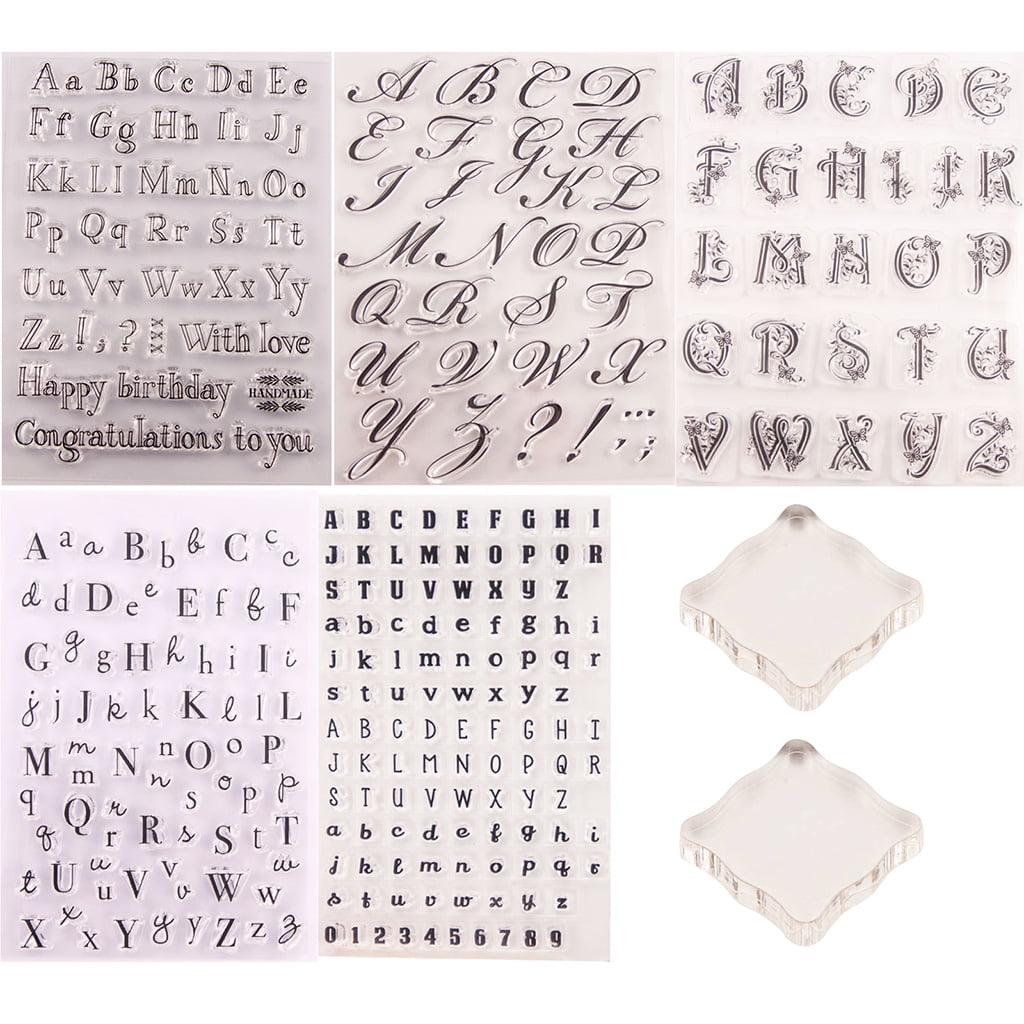 Aa Bb Cc Dd Ee
Ff Gg Hh Ii Jj
Kk Ll Mm Nn Oo
Pp Qq Rr Ss Tt
Uu Vv Ww Xx Yy
Zz ! , ? xxx With love
Happy birthday HANDMADE
Congratulations to you
A B C D
E F G H
I J K L
M N O P
Q R S T
U V W X
Y Z ? ! ... , ;
A B C D E
F G H I J K
L M N O P
Q R S T U
V W X Y Z
A a a B b b C c c
d d D e e E f f F
G g g H h h i I i
j j J k k K l l L
M m m N n n O o o P p p
q q Q r r R s s S t T
t U u u V v v W w w
X x x Y y y Z z z
A B C D E F G H I
J K L M N O P Q R
S T U V W X Y Z
a b c d e f g h i
j k l m n o p q r
s t u v w x y z
A B C D E F G H I
J K L M N O P Q R
S T U V W X Y Z
a b c d e f g h i
j k l m n o p q r
s t u v w x y z
0 1 2 3 4 5 6 7 8 9